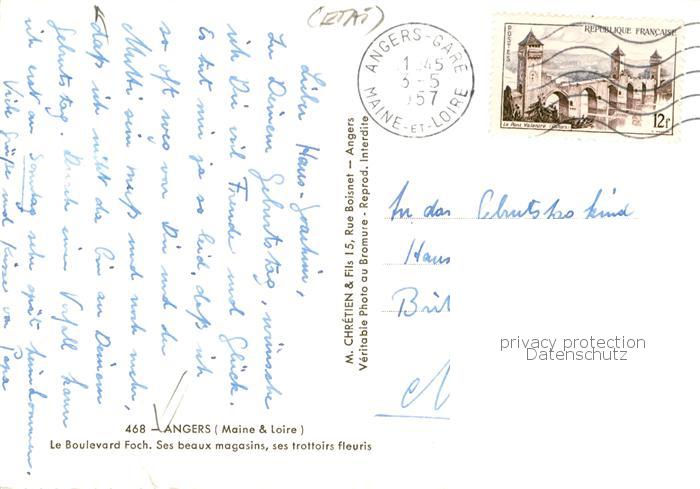 (ETAI)
Lieber Hans-Joachim,
Zu Deinem Geburtstag, wünsche
ich Dir viel Freude und Glück.
Es tut mir ja so leid, daß ich
so oft weg von Dir und der
Mutti sein muß und noch mehr,
daß ich nicht da bin an Deinem
Geburtstag. Durch einen Vorfall kann
ich erst am Sonntag sehr spät heimkommen.
Viele Grüße und Küsse von Papa
468 - ANGERS ( Maine & Loire )
Le Boulevard Foch. Ses beaux magasins, ses trottoirs fleuris
M. CHRÉTIEN & Fils 15, Rue Boisnet — Angers
Véritable Photo au Bromure - Reprod. Interdite
ANGERS-GARE
1 45
3-5
1957
MAINE-ET-LOIRE
POSTES
REPUBLIQUE FRANÇAISE
Le Pont Valentré (Cahors)
12F
An das Geburtstagskind
Hans
Brit
privacy protection
Datenschutz